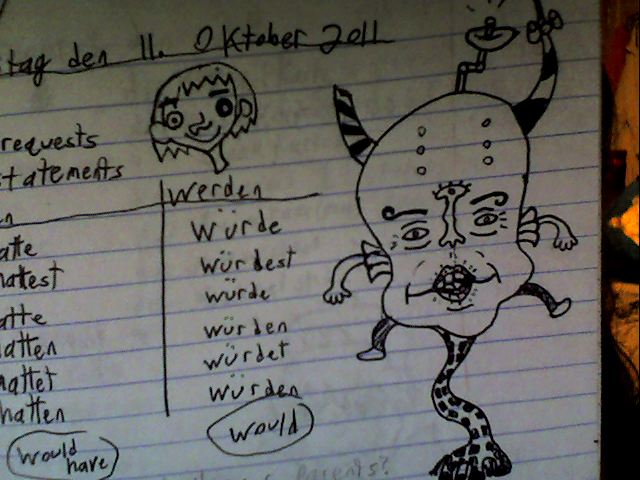 tag den 11. Oktober 2011
requests
statements
en werden
atte würde
hattest würdest
atte würde
hatten würden
hattet würdet
hatten würden
would have would
parents?